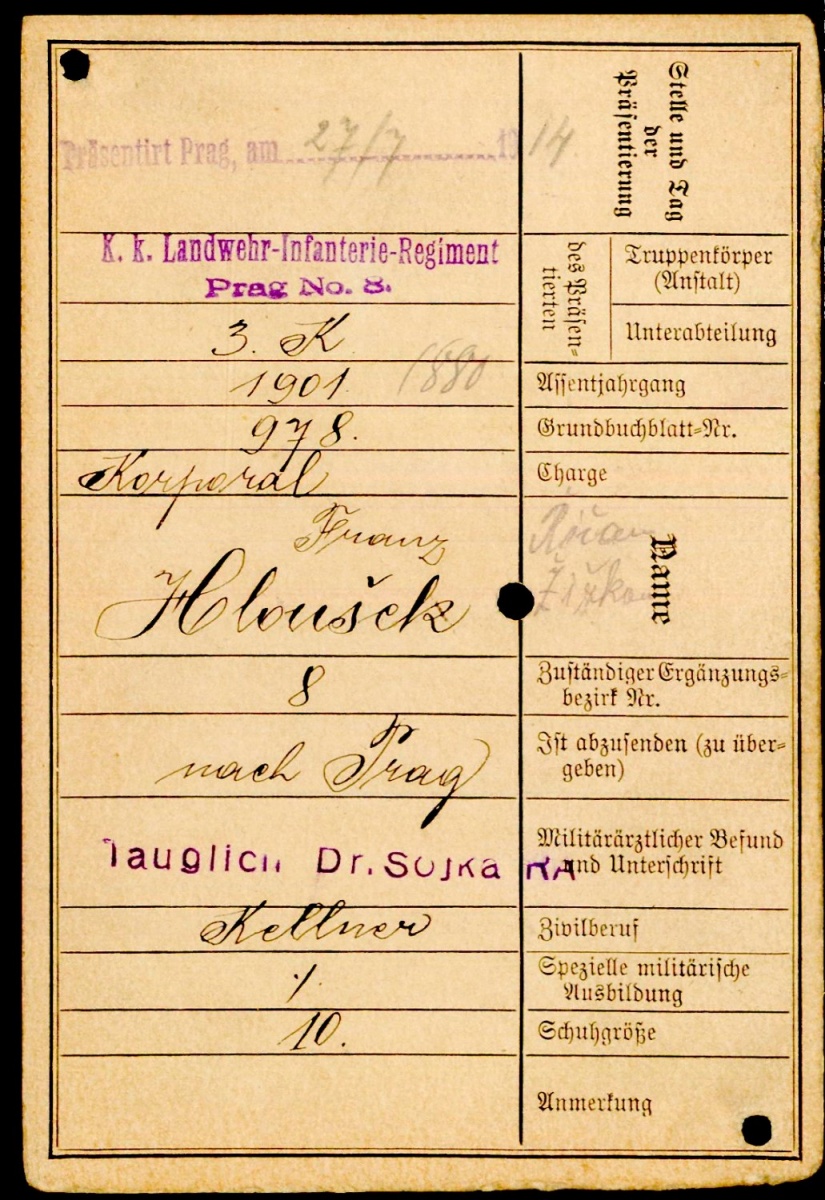 Präsentirt Prag, am 27/7 1914
Stelle und Tag
der
Präsentierung
K. k. Landwehr-Infanterie-Regiment
Prag No. 8.
des Präsen-
tierten
Truppenkörper
(Anstalt)
3. K
Unterabteilung
1901 1880
Assentjahrgang
978.
Grundbuchblatt-Nr.
Korporal
Charge
Franz
Hloušek
Name
Žižkov
8
Zuständiger Ergänzungs-
bezirk Nr.
nach Prag
Ist abzusenden (zu über-
geben)
Tauglich Dr. Sojka RA
Militärärztlicher Befund
und Unterschrift
Kellner
Zivilberuf
/.
Spezielle militärische
Ausbildung
10.
Schuhgröße
Anmerkung